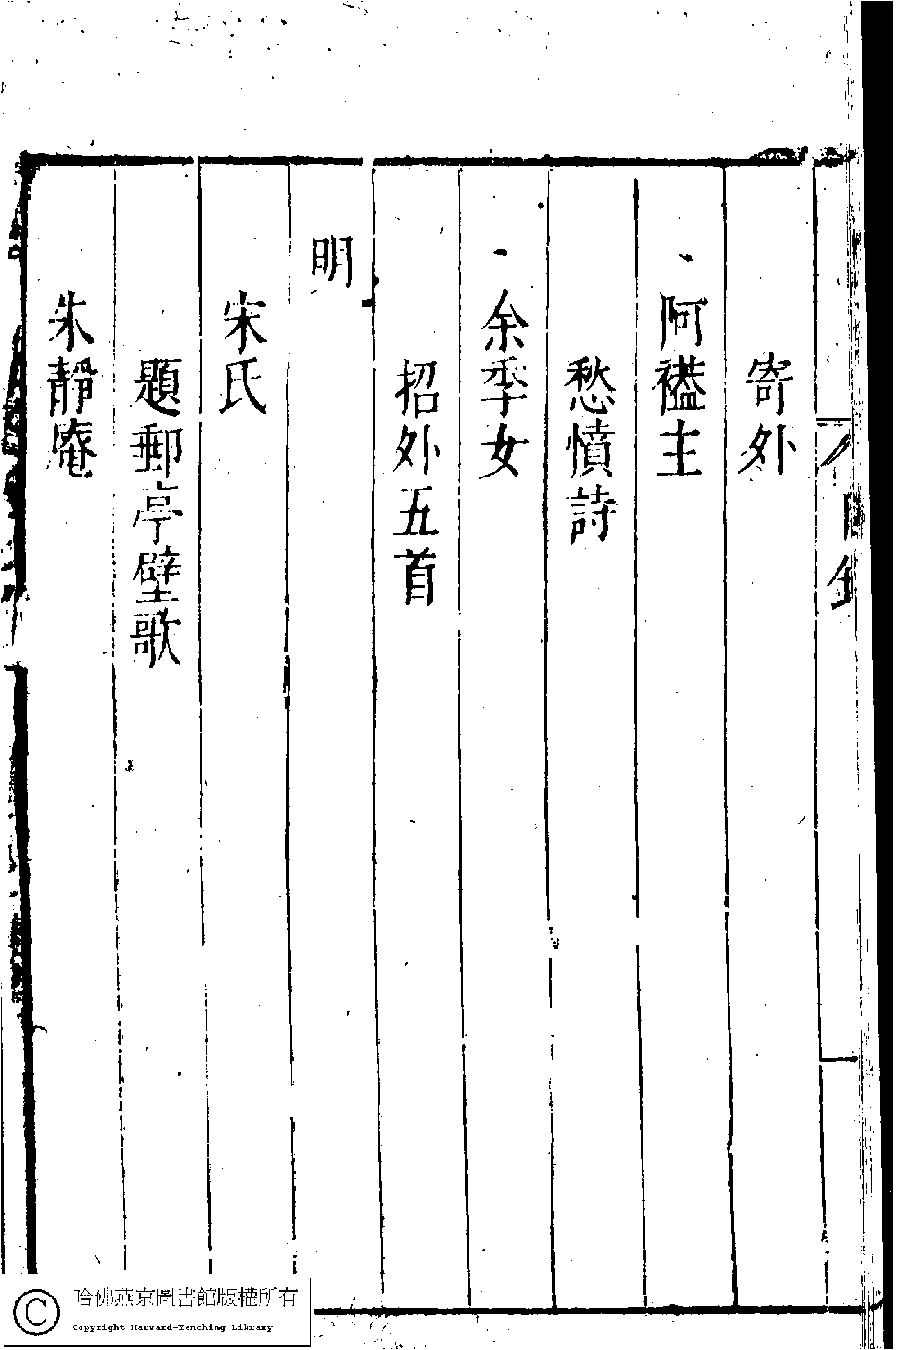 寄外
阿𧜟主
愁憤詩
余季女
招外五首
明
宋氏
題郵亭壁歌
朱靜庵
哈佛燕京圖書館版權所有
Copyright Harvard-Yenching Library